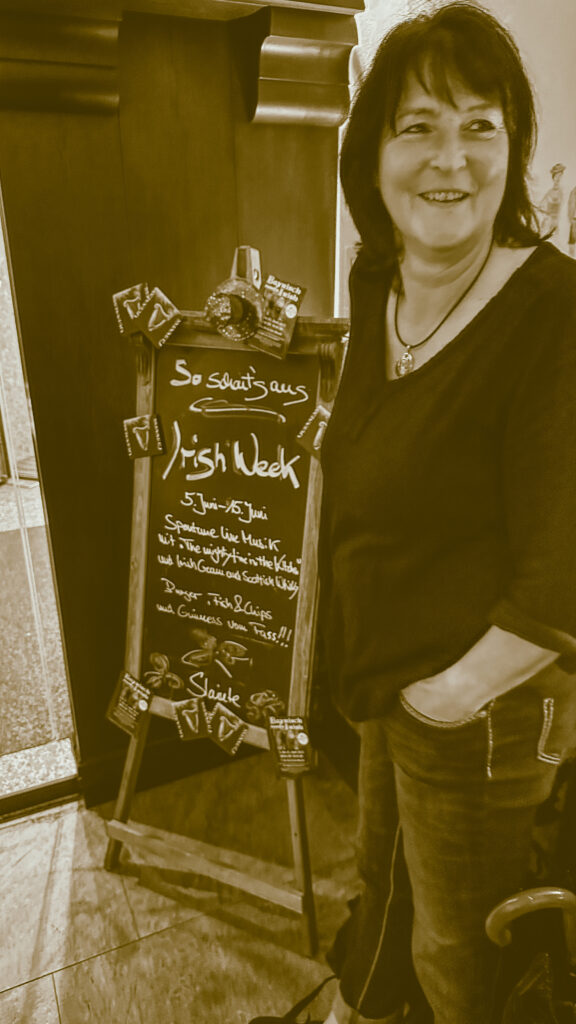 Bayrisch
So schaut's aus
Irish Week
5. Juni - 15. Juni
Spontane Live Musik
mit "The mighty fine in the Kitchn"
und Irish Cream and Scottish Whisky
Burger, Fish & Chips
und Guinness vom Fass!!!
Slainte
Bayrisch
Bayrisch